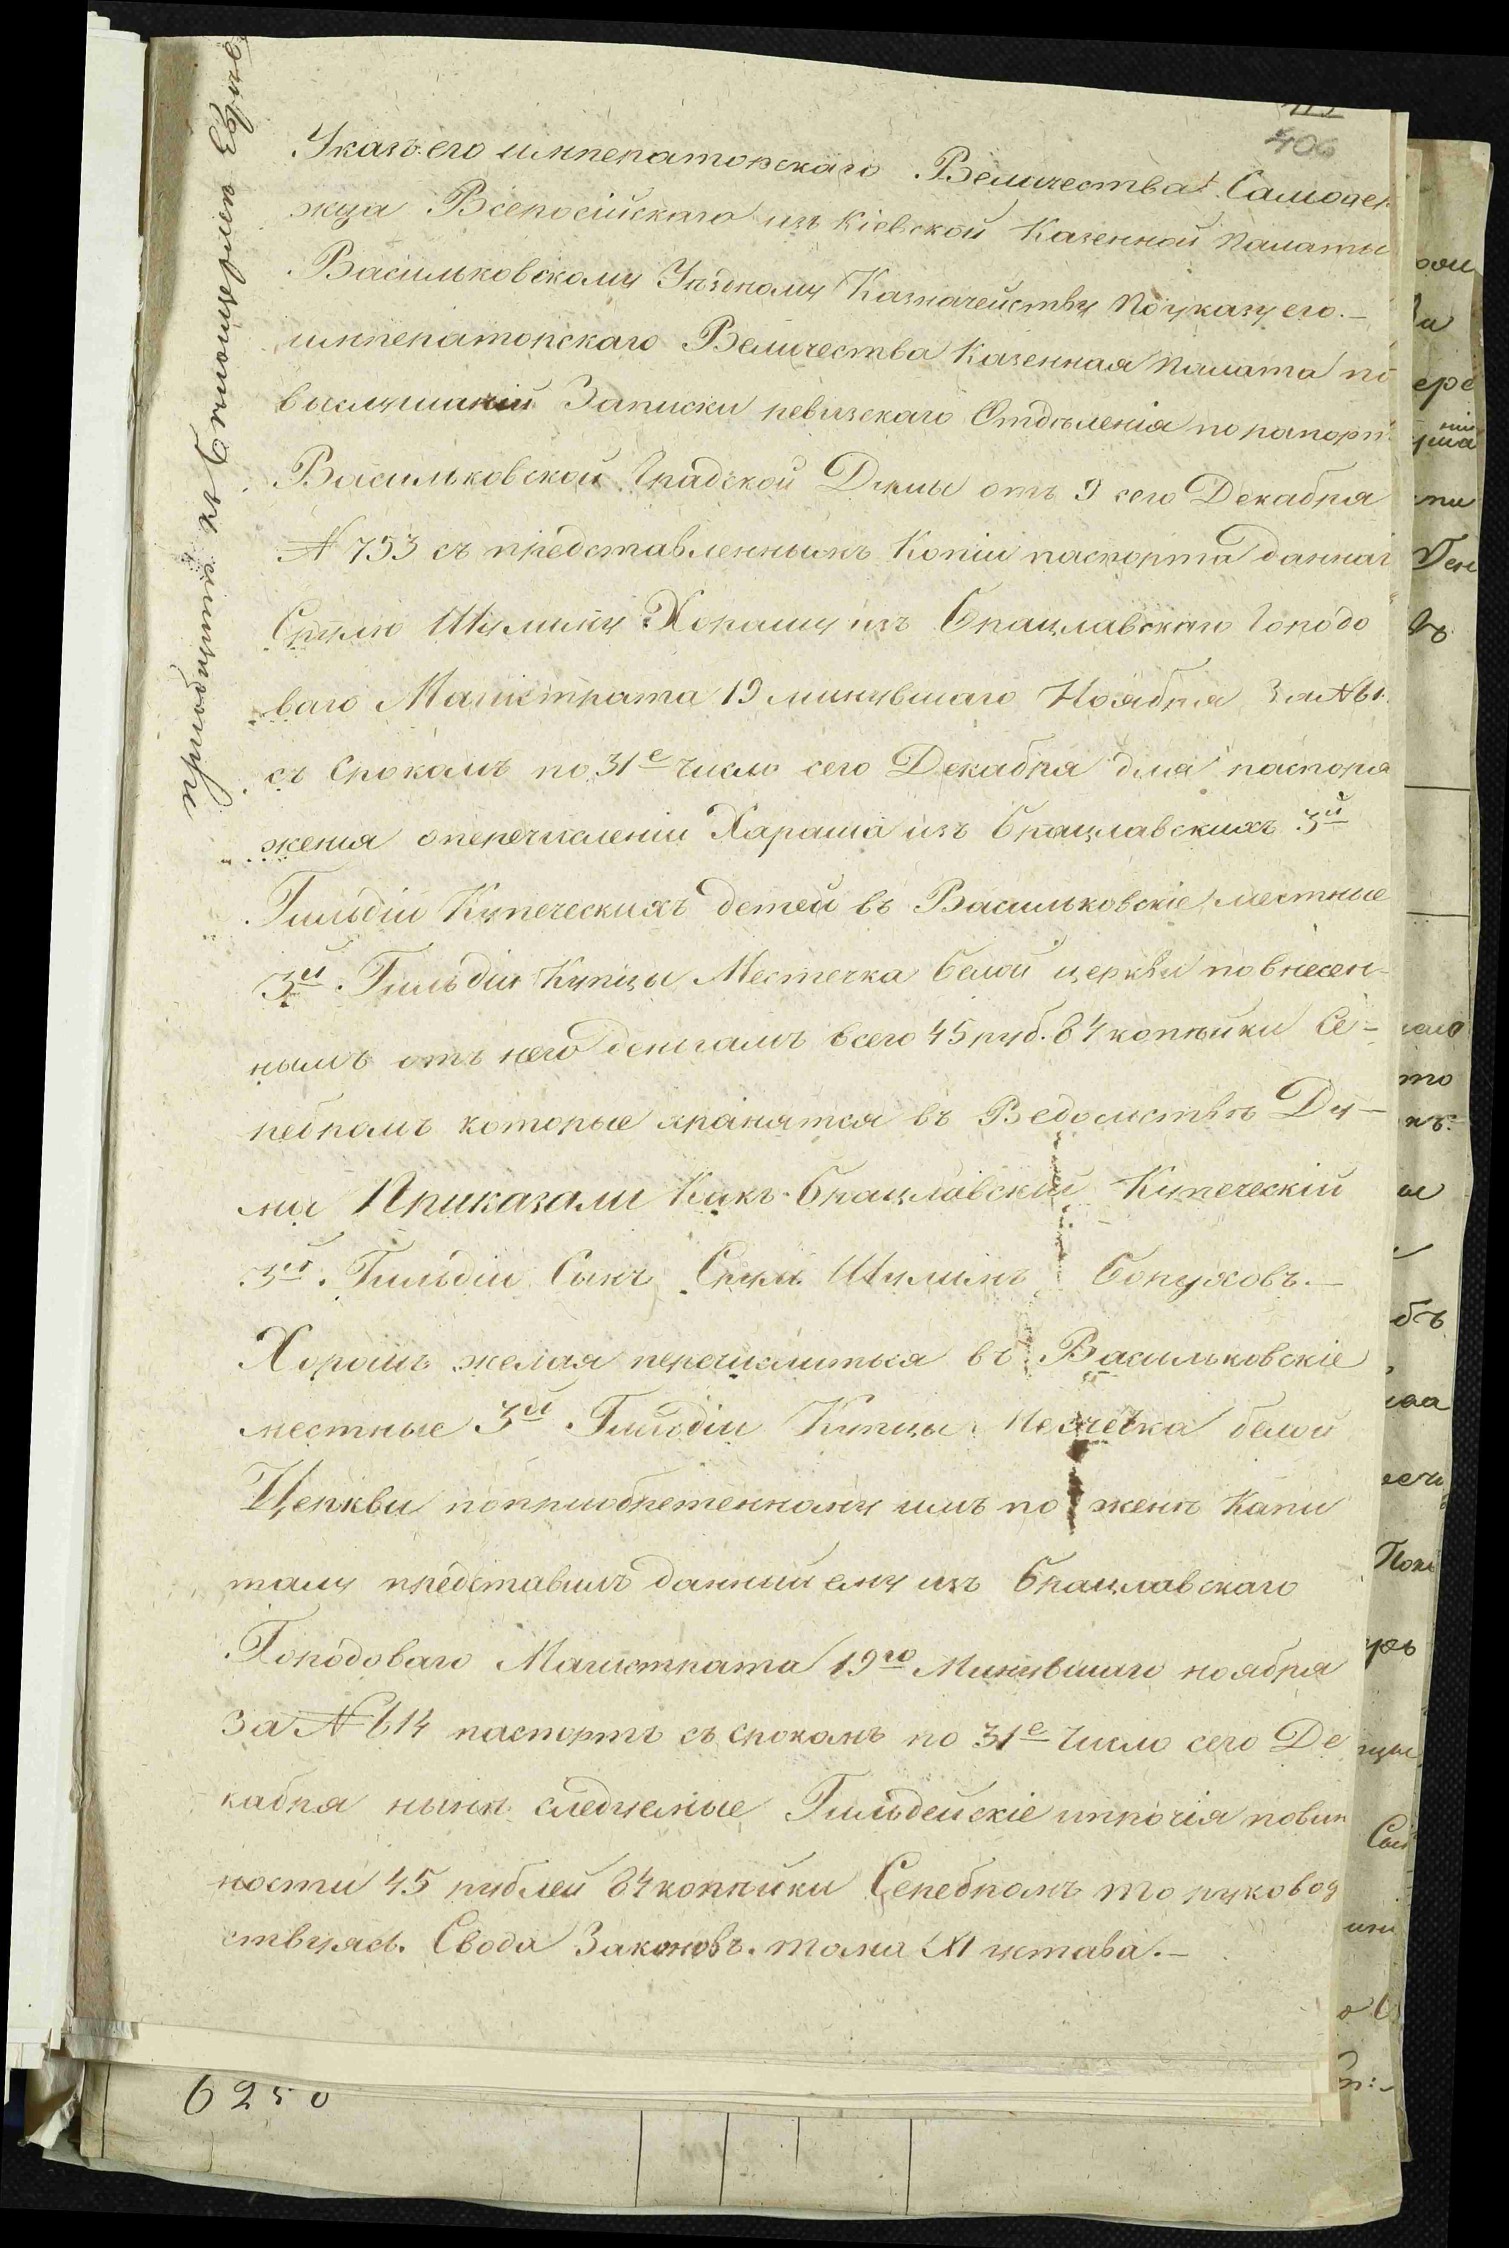 406
Указъ его императорскаго Величества Самодер
жца Всеросійскаго изъ Кіевской Казенной палаты
Васильковскому Уѣздному Казначейству По указу его.—
императорскаго Величества Казенная палата по
выслушаніи Записки ревизскаго Отдѣленія по рапорт
Васильковской Градской Думы отъ 9 сего Декабря
№ 753 съ представленнымъ Копіи паспорта даннаг
Срулю Шулиму Хорошу изъ Брацлавскаго Городо
ваго Магистрата 19 минувшаго Ноября За №
съ Срокомъ по 31е число сего Декабря для распоря
жения о перечислении Хараша изъ Брацлавскихъ 3й
Гильдіи Купеческихъ детей въ Васильковскіе местные
3й Гильдіи Купцы Местечка белой церкви по внесен-
нымъ отъ него денгамъ всего 45 руб. 84 копѣйки Се-
ребромъ которые хранятся въ Ведомствѣ Ду-
мы Приказали Какъ Брацлавскій Купеческій
3й Гильдіи Сынъ Сруль Шулимъ Боруховъ.—
Хорошъ желая перечислиться въ Васильковскіе
местные 3й Гильдіи Купцы Месчетка белой
Церкви по приобретенному имъ по женѣ Капи
талу представилъ данный ему изъ Брацлавскаго
Городоваго Магистрата 19го Минувшаго ноября
за № 614 паспортъ съ срокомъ по 31е Число сего Де
кабря ныня следуемые Гильдейскіе и прочія повин
ности 45 рублей 84 копѣйки Серебромъ то руковод
ствуясь. Свода Законовъ. тома XI устава.—
6250